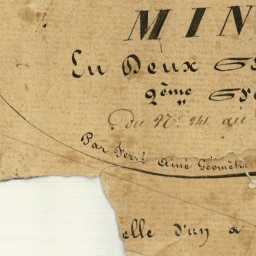 MIN
En Deux
2ème
Du N° 241 au
Par Ferré Ainé Géomètre
elle d'un a